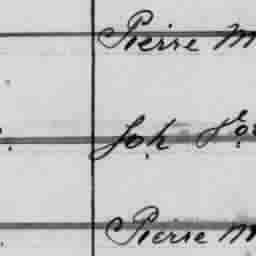 Pierre M
Joh Jos
Pierre M